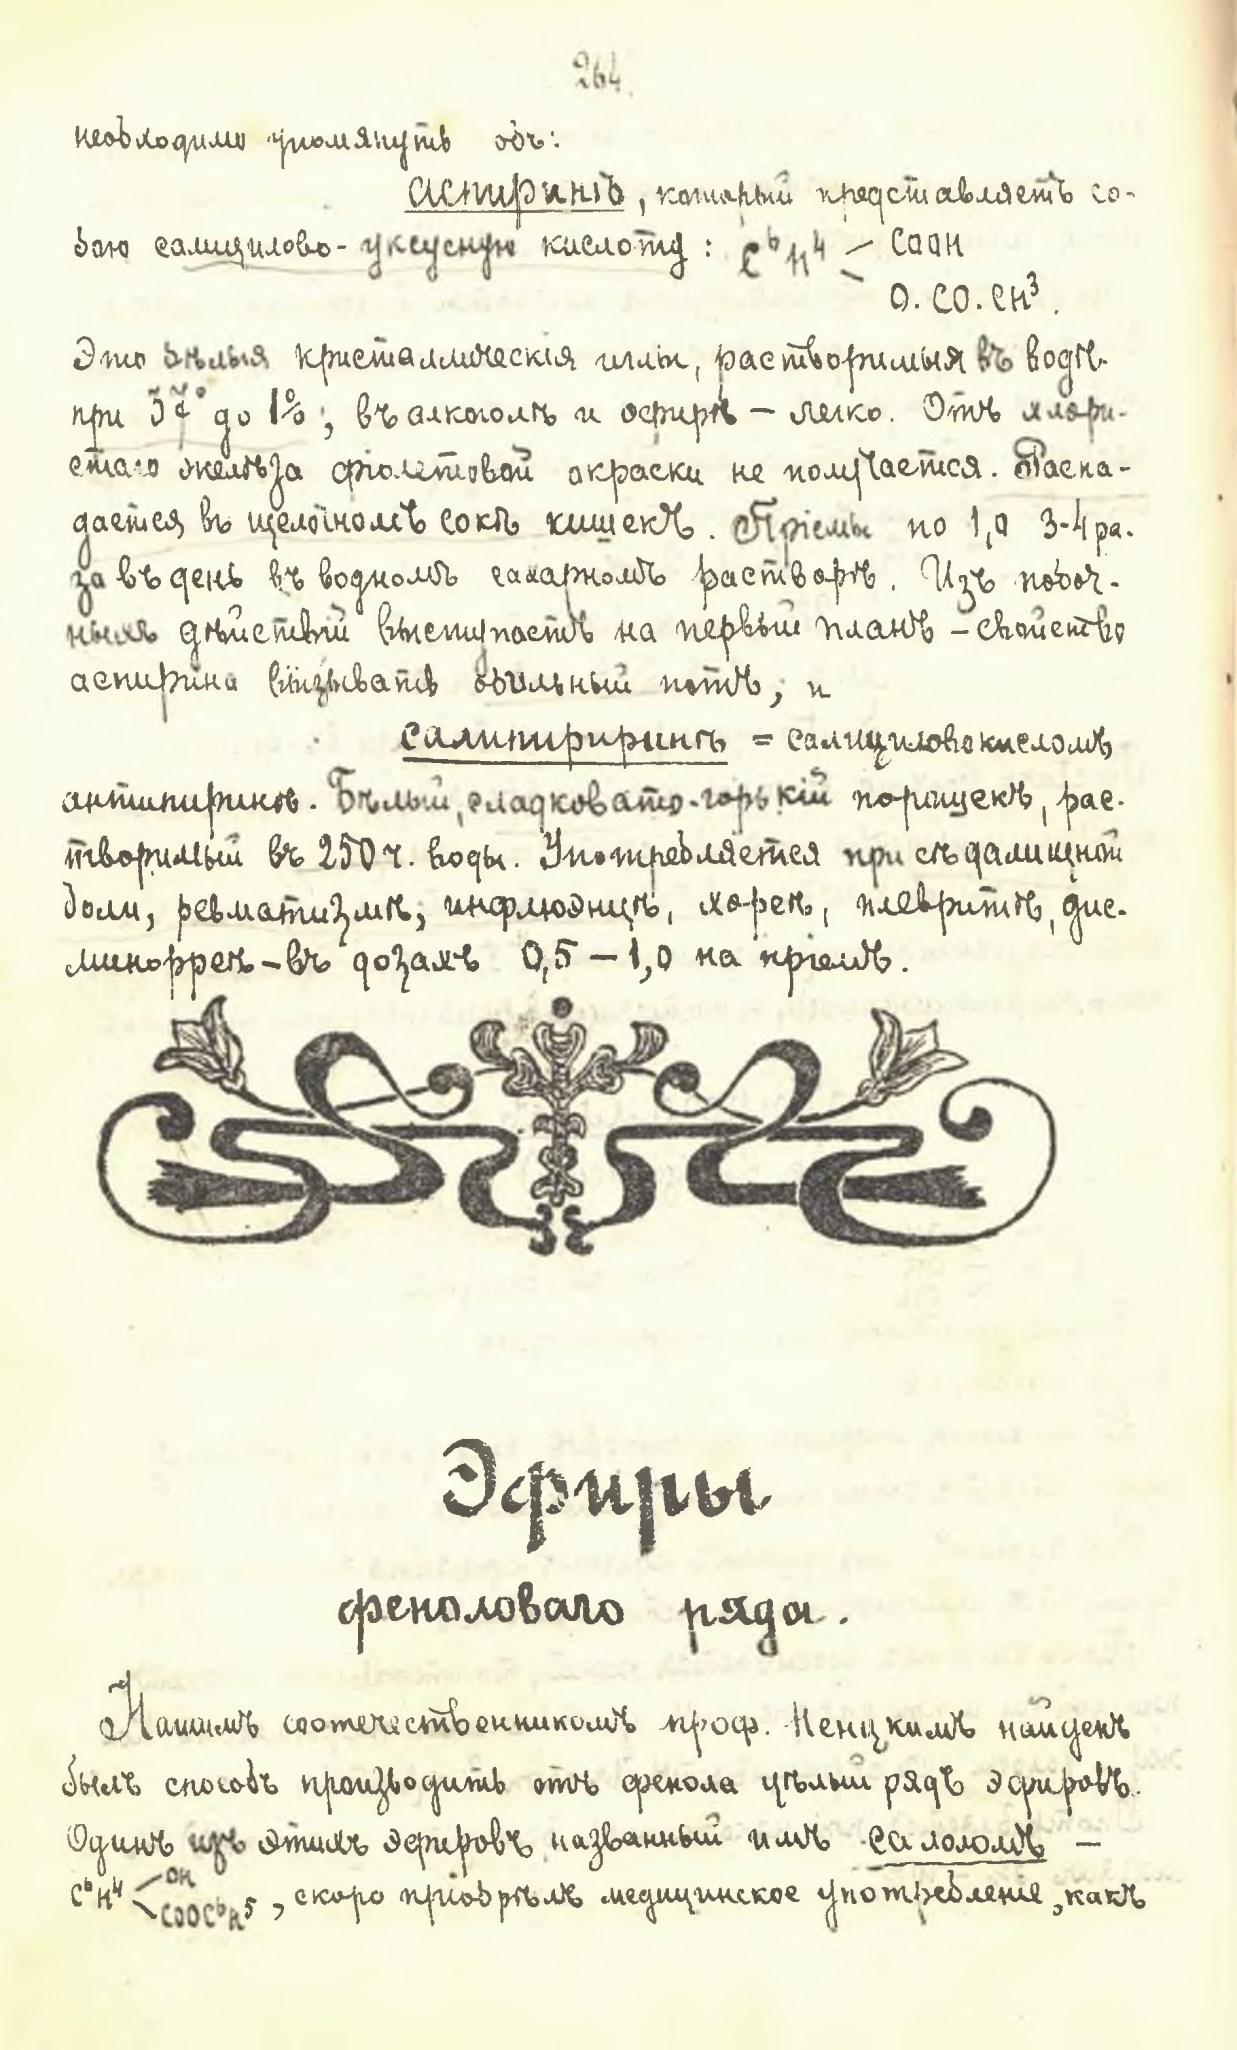 264.
необходимо упомянуть объ:
аспиринѣ, который представляетъ со-
бою салицилово-уксусную кислоту: C⁶H⁴ — COOH
O.CO.CH³.
Это бѣлыя кристаллическія иглы, растворимыя въ водѣ
при 37° до 1%; въ алкоголѣ и эфирѣ — легко. Отъ хлори-
стаго желѣза фіолетовой окраски не получается. Распа-
дается въ щелочномъ сокѣ кишекъ. Пріемы по 1,0 3-4 ра-
за въ день въ водномъ сахарномъ растворѣ. Изъ побоч-
ныхъ дѣйствій выступаетъ на первый планъ — свойство
аспирина вызывать обильный потъ; и
салипиринъ = салициловокисломъ
антипиринѣ. Бѣлый, сладковато-горькій порошекъ, рас-
творимый въ 250 ч. воды. Употребляется при сѣдалищной
боли, ревматизмѣ, инфлюэнцѣ, хореѣ, плевритѣ, дис-
миноррреѣ — въ дозахъ 0,5 — 1,0 на пріемъ.
Эфиры
феноловаго ряда.
Нашимъ соотечественникомъ проф. Ненцкимъ найденъ
былъ способъ производить отъ фенола цѣлый рядъ эфировъ.
Одинъ изъ этихъ эфировъ, названный имъ салоломъ —
C⁶H⁴ OH COOC⁶H⁵, скоро пріобрѣлъ медицинское употребленіе, какъ